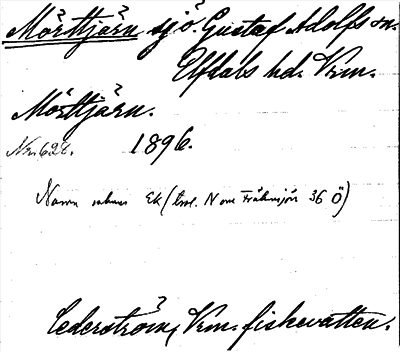 Mörttjärn sjö. Gustaf Adolfs sn.
Elfdals hd. Vrm.
Mörttjärn.
1896.
Namn saknas Ek (trol. N om Fräkensjön 36 Ö)
Cederström, Vrm. fiskevatten.